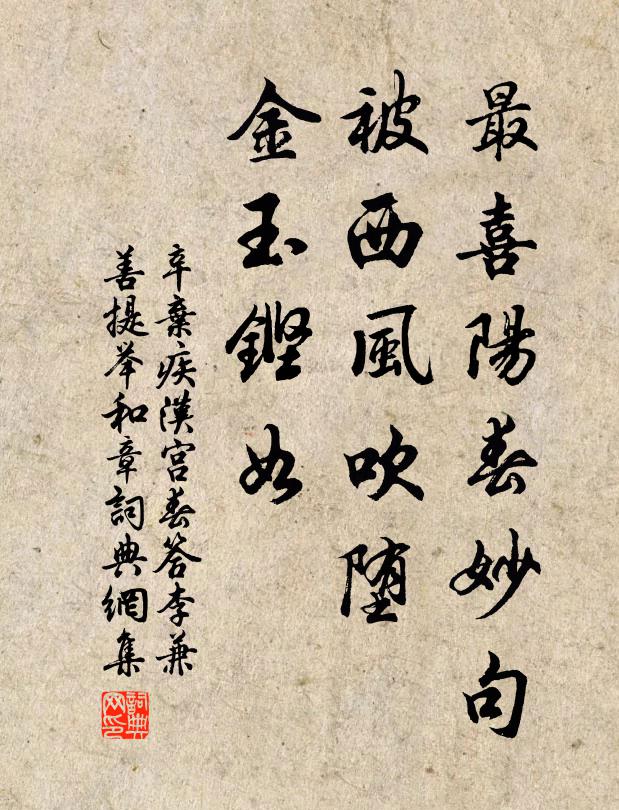 最喜陽春妙句
被西風吹堕
金玉鏗如
辛棄疾漢宮春答李兼
善提举和章詞典網集
詞典网印